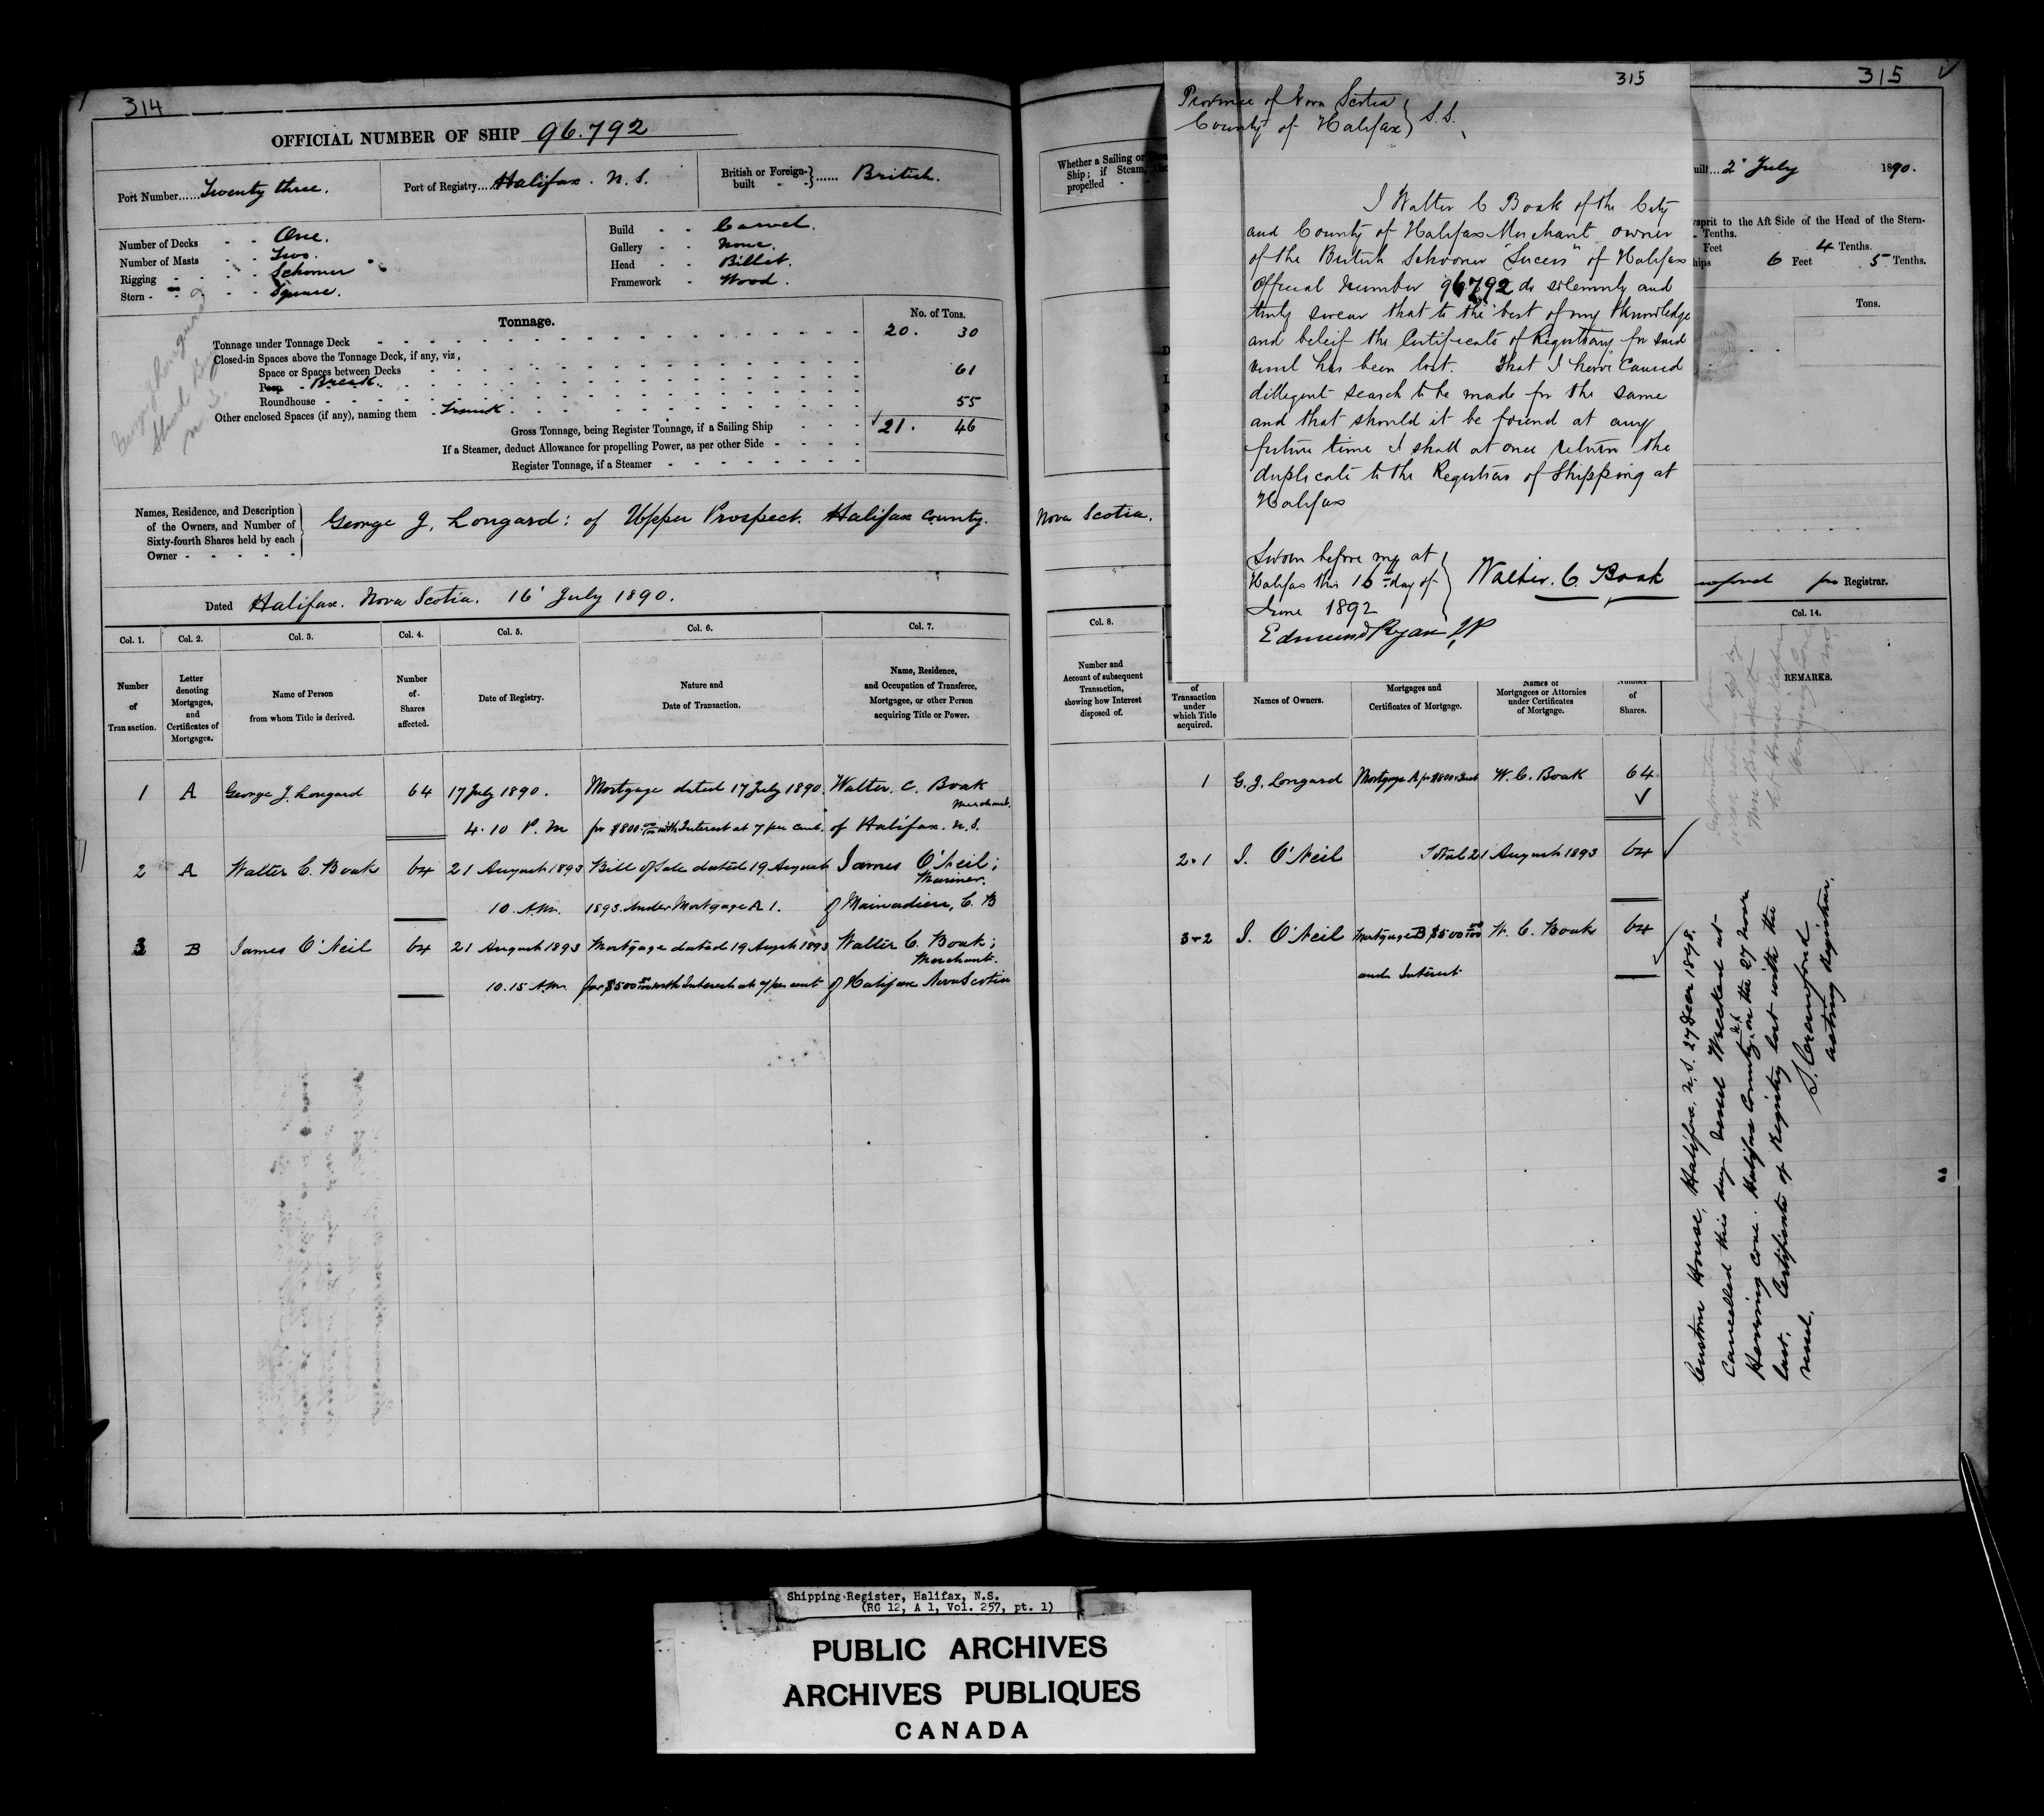 314
OFFICIAL NUMBER OF SHIP 96.792
Port Number......Twenty three.
Port of Registry....Halifax. N. S.
British or Foreign-built - -}...... British.
Number of Decks - - One.
Number of Masts - - Two.
Rigging - - - - Schooner
Stern - - - - Square.
Build - - Carvel.
Gallery - - None.
Head - - Billet.
Framework - Wood.
Tonnage.
No. of Tons.
Tonnage under Tonnage Deck 20. 30
Closed-in Spaces above the Tonnage Deck, if any, viz,
Space or Spaces between Decks
Poop - Break. 61
Roundhouse
Other enclosed Spaces (if any), naming them - Trunk 55
Gross Tonnage, being Register Tonnage, if a Sailing Ship 21. 46
If a Steamer, deduct Allowance for propelling Power, as per other Side
Register Tonnage, if a Steamer
Names, Residence, and Description
of the Owners, and Number of
Sixty-fourth Shares held by each
Owner - - - - -
George J. Longard: of Upper Prospect. Halifax County.
Dated Halifax. Nova Scotia. 16' July 1890.
Col. 1. Col. 2. Col. 3. Col. 4. Col. 5. Col. 6. Col. 7.
Number of Transaction.
Letter denoting Mortgages, and Certificates of Mortgages.
Name of Person from whom Title is derived.
Number of Shares affected.
Date of Registry.
Nature and Date of Transaction.
Name, Residence, and Occupation of Transferee, Mortgagee, or other Person acquiring Title or Power.
1 A George J. Longard 64 17 July 1890. Mortgage dated 17 July 1890. Walter. C. Boak
Merchant.
4.10 P. M for $800.00/100 with Interest at 7 per cent. of Halifax. N. S.
2 A Walter C. Boak 64 21 August 1893 Bill of Sale dated 19 August James O'Neil;
Mariner.
10. A.M. 1893. Under Mortgage A 1. of Mainadieu, C. B
3 B James O'Neil 64 21 August 1893 Mortgage dated 19 August 1893 Walter C. Boak;
Merchant.
10.15 A.M. for $500 00/100 with Interest at 7 per cent of Halifax Nova Scotia
315
Whether a Sailing or
Ship; if Steam,
propelled - -
Nova Scotia.
Col. 8.
Number and Account of subsequent Transaction, showing how Interest disposed of.
315
Province of Nova Scotia
County of Halifax} S.S.
I Walter C Boak of the City
and County of Halifax Merchant owner
of the British Schooner "Sucess" of Halifax
Official number 96792 do solemnly and
truly swear that to the best of my knowledge
and beleif the Certificate of Registrary for said
vessel has been lost. That I have caused
dilligent search to be made for the same
and that should it be found at any
future time I shall at once return the
duplicate to the Registrar of Shipping at
Halifax
Sworn before me at
Halifax this 16th day of
June 1892
Walter. C. Boak
Edmund Ryan J.P.
uilt... 2' July 1890.
sprit to the Aft Side of the Head of the Stern-
Tenths.
Feet 4 Tenths.
hips 6 Feet 5 Tenths.
Tons.
for Registrar.
Col. 14.
of Transaction under which Title acquired.
Names of Owners.
Mortgages and Certificates of Mortgage.
Names of Mortgagees or Attornies under Certificates of Mortgage.
Number of Shares.
REMARKS.
1 G. J. Longard Mortgage A for $800 & Int W. C. Boak 64
2.1 J. O'Neil 21 August 1893 64
3-2 J. O'Neil Mortgage B $500 00/100 W. C. Boak 64
and Interest
Custom House, Halifax, N.S. 27 Decr 1898.
Cancelled this day vessel Wrecked at
Herring Cove. Halifax County, N.S. on the 27 Novr
last. Certificate of Registry lost with the
vessel.
S. Crawford
acting Registrar.
Shipping Register, Halifax, N.S.
(RG 12, A 1, Vol. 257, pt. 1)
PUBLIC ARCHIVES
ARCHIVES PUBLIQUES
CANADA